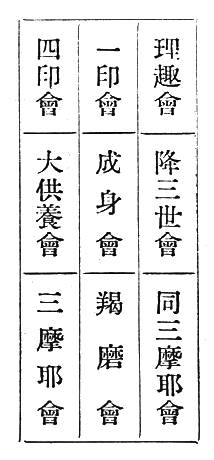 理趣會
一印會
四印會
降三世會
成身會
大供養會
同三摩耶會
羯磨會
三摩耶會